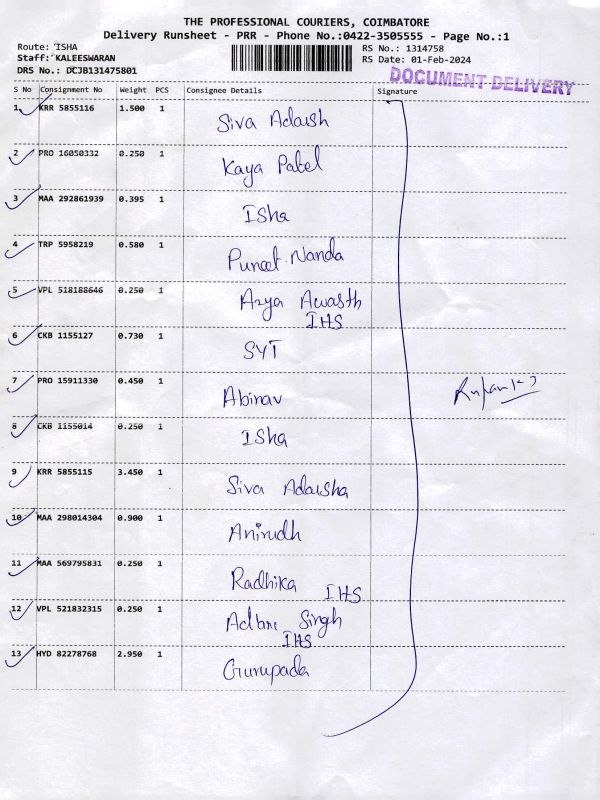 THE PROFESSIONAL COURIERS, COIMBATORE
Delivery Runsheet - PRR - Phone No.:0422-3505555 - Page No.:1
Route: ISHA
Staff: KALEESWARAN
DRS No.: DCJB131475801
RS No.: 1314758
RS Date: 01-Feb-2024
DOCUMENT DELIVERY
S No Consignment No Weight PCS Consignee Details Signature
1 KRR 5855116 1.500 1 Siva Adarsh
2 PRO 16050332 0.250 1 Kaya Patel
3 MAA 292861939 0.395 1 Isha
4 TRP 5958219 0.580 1 Puneet Nanda
5 VPL 518188646 0.250 1 Arya Awasth
IHS
6 CKB 1155127 0.730 1 SYT
7 PRO 15911330 0.450 1 Abinav
8 CKB 1155014 0.250 1 Isha
9 KRR 5855115 3.450 1 Siva Adarsha
10 MAA 298014304 0.900 1 Anirudh
11 MAA 569795831 0.250 1 Radhika IHS
12 VPL 521832315 0.250 1 Singh
IHS
13 HYD 82278768 2.950 1 Gurupada